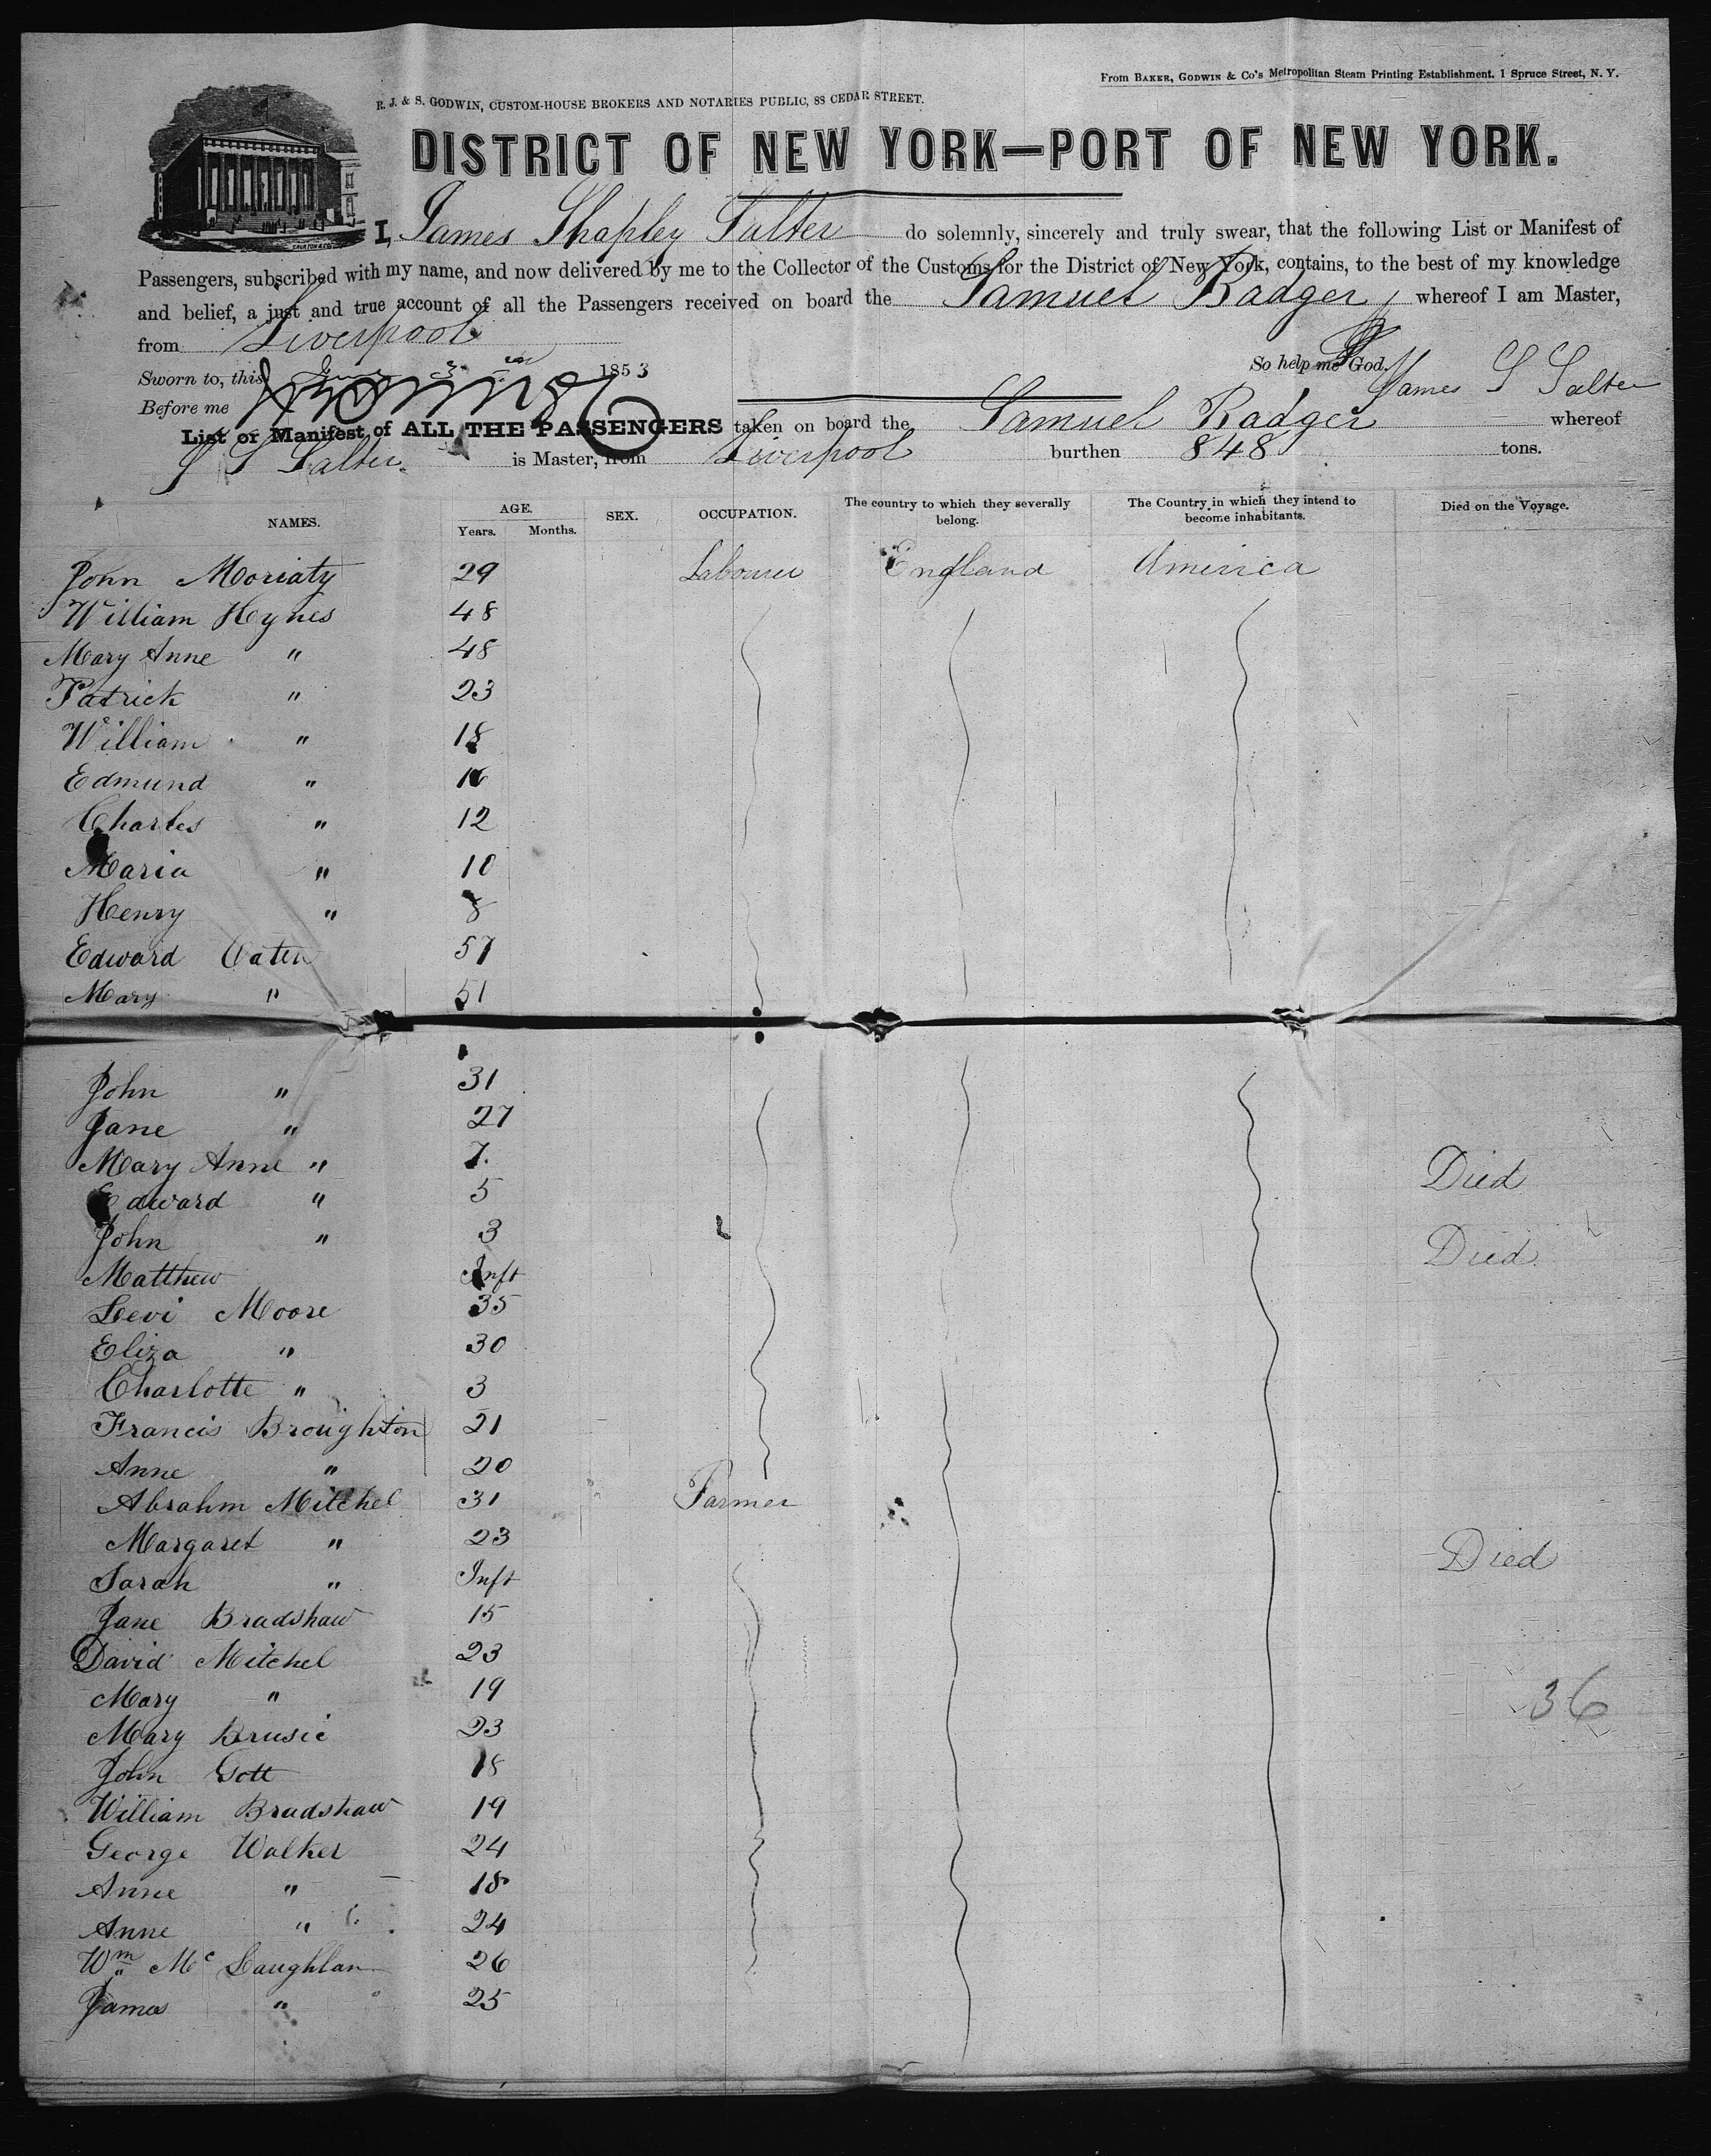 From BAKER, GODWIN & Co's Metropolitan Steam Printing Establishment, 1 Spruce Street, N. Y.
R. J. & S. GODWIN, CUSTOM-HOUSE BROKERS AND NOTARIES PUBLIC, 88 CEDAR STREET.
DISTRICT OF NEW YORK—PORT OF NEW YORK.
I, James Shapley Salter do solemnly, sincerely and truly swear, that the following List or Manifest of
Passengers, subscribed with my name, and now delivered by me to the Collector of the Customs for the District of New York, contains, to the best of my knowledge
and belief, a just and true account of all the Passengers received on board the Samuel Badger whereof I am Master,
from Liverpool
Sworn to, this June 3 1853 So help me God.
Before me James S Salter
List or Manifest of ALL THE PASSENGERS taken on board the Samuel Badger whereof
J S Salter is Master, from Liverpool burthen 848 tons.
NAMES. AGE. Years. Months. SEX. OCCUPATION. The country to which they severally belong. The Country in which they intend to become inhabitants. Died on the Voyage.
John Moriaty 29 Labourer England America
William Hynes 48
Mary Anne " 48
Patrick " 23
William " 18
Edmund " 16
Charles " 12
Maria " 10
Henry " 8
Edward Oaten 57
Mary " 51
John " 31
Jane " 27
Mary Anne " 7. Died
Edward " 5
John " 3 Died
Matthew Inft
Levi Moore 35
Eliza " 30
Charlotte " 3
Francis Broughton 21
Anne " 20
Abrahm Mitchel 31 Farmer
Margaret " 23
Sarah " Inft Died
Jane Bradshaw 15
David Mitchel 23
Mary " 19
36
Mary Brusie 23
John Gott 18
William Bradshaw 19
George Walker 24
Anne " 18
Anne " 24
Wm Mc Laughlan 26
James " 25